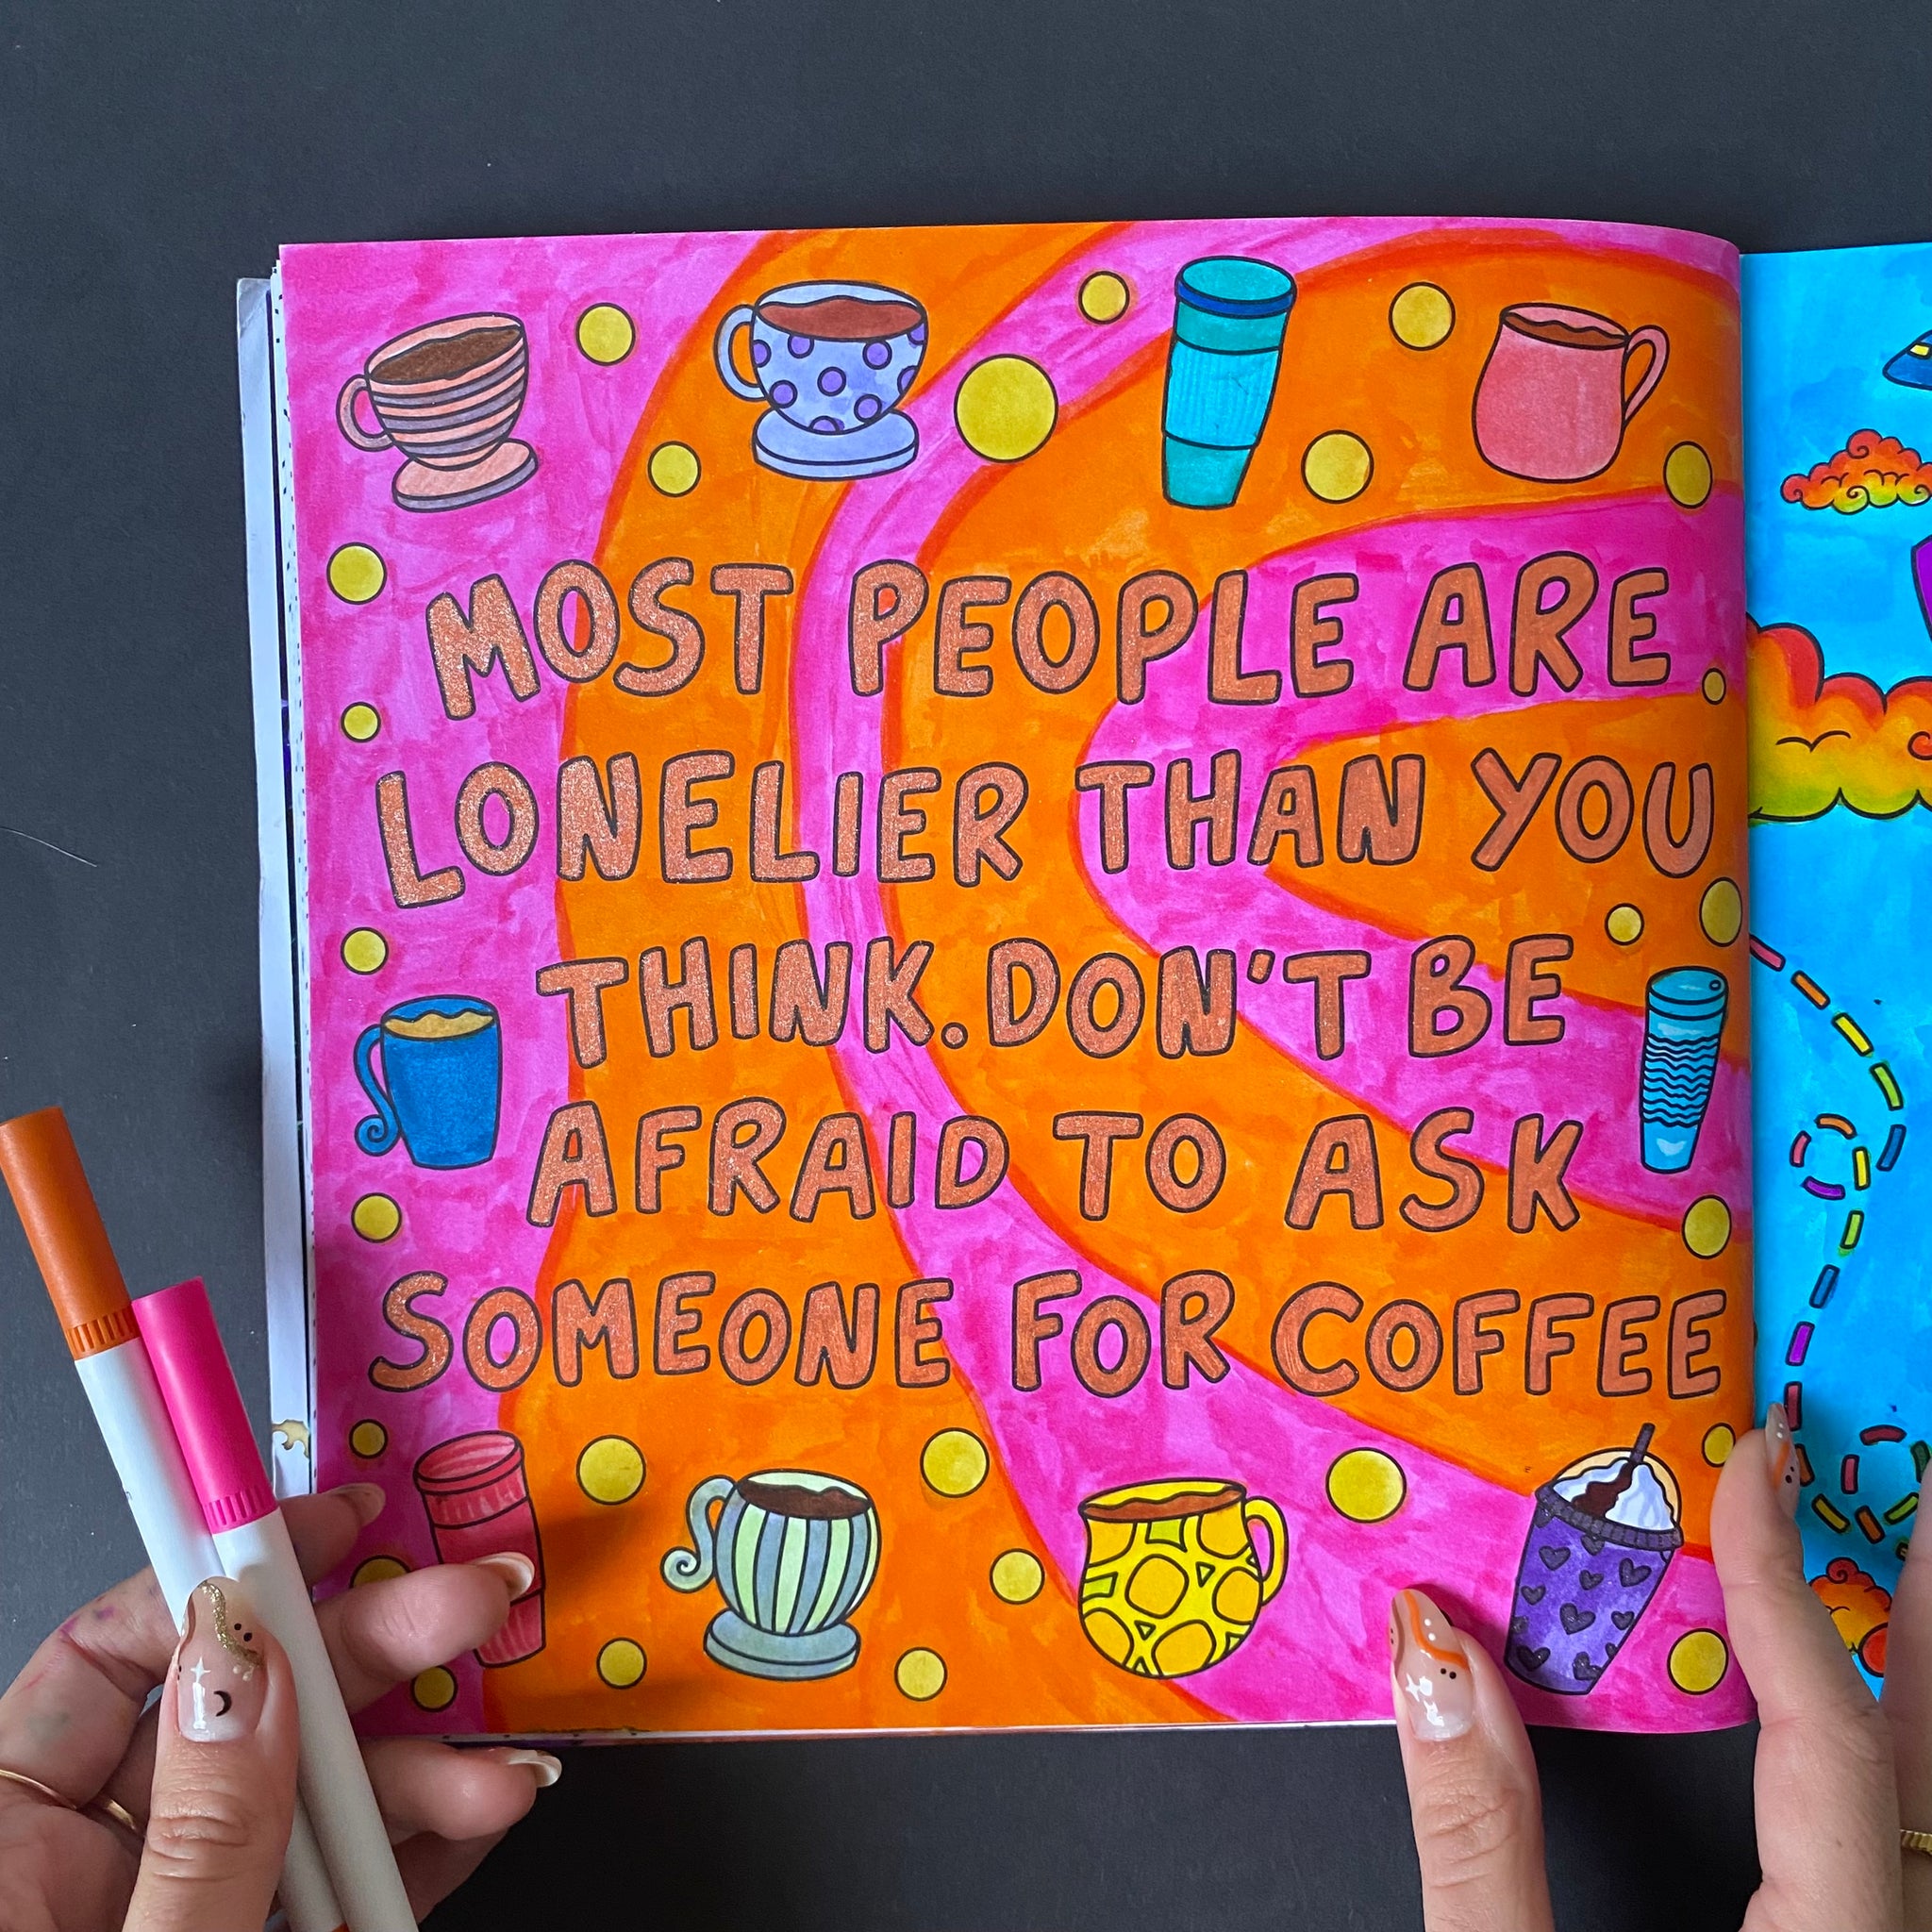 MOST PEOPLE ARE
LONELIER THAN YOU
THINK. DON'T BE
AFRAID TO ASK
SOMEONE FOR COFFEE